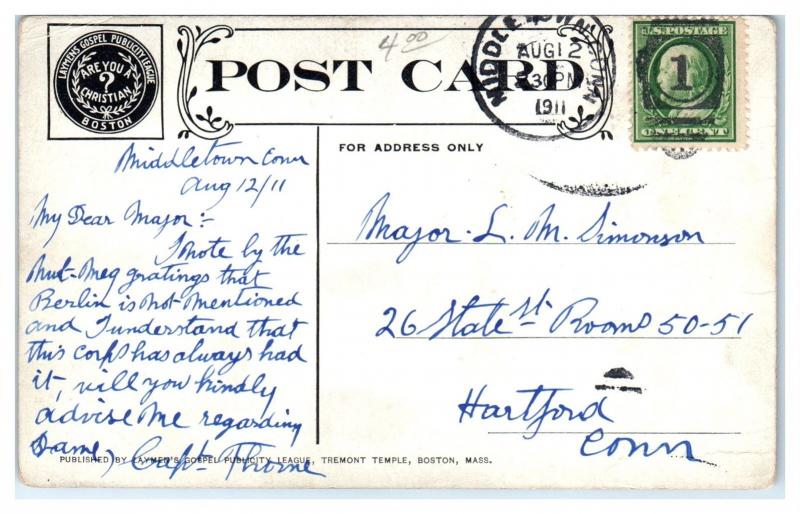 LAYMEN'S GOSPEL PUBLICITY LEAGUE
ARE YOU A
?
CHRISTIAN
BOSTON
POST CARD
4 00
MIDDLETOWN CONN
AUG 12
30PM
1911
U.S. POSTAGE
1
FOR ADDRESS ONLY
Middletown Conn
Aug 12/11
My Dear Major:-
I note by the
Nut-Meg gratings that
Berlin is not mentioned
and I understand that
this corps has always had
it, will you kindly
advise me regarding
Same, Capt. Thorne
Major. L. M. Simonson
26 State St Rooms 50-51
Hartford
Conn
PUBLISHED BY LAYMEN'S GOSPEL PUBLICITY LEAGUE, TREMONT TEMPLE, BOSTON, MASS.